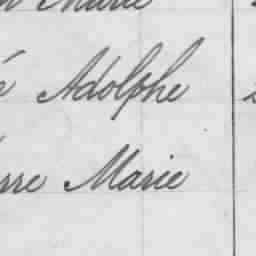 Marie
é Adolphe
rre Marie